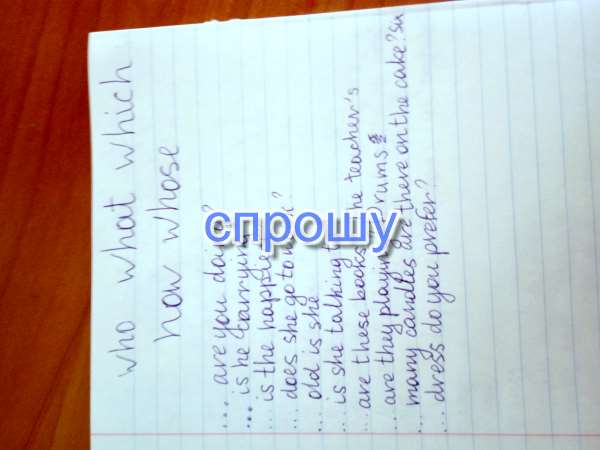 who what which
how whose
... are you doing?
... is he carrying
... is the happiest
... does she go to
... old is she
... is she talking
... are these books the teacher's
... are they playing drums
... many candles are there on the cake? six
... dress do you prefer?
спрошу